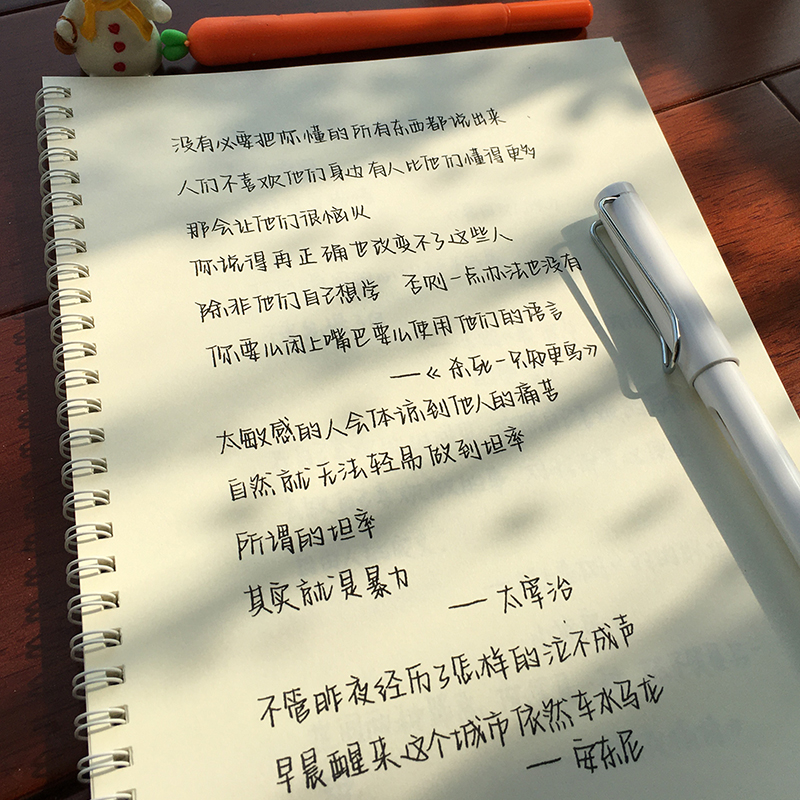 没有必要把你懂的所有东西都说出来
人们不喜欢他们身边有人比他们懂得更多
那会让他们很恼火
你说得再正确也改变不了这些人
除非他们自己想学 否则一点办法也没有
你要么闭上嘴巴要么使用他们的语言
—《杀死一只知更鸟》
太敏感的人会体谅到他人的痛苦
自然就无法轻易做到坦率
所谓的坦率
其实就是暴力
— 太宰治
不管昨夜经历了怎样的泣不成声
早晨醒来这个城市依然车水马龙
— 安东尼